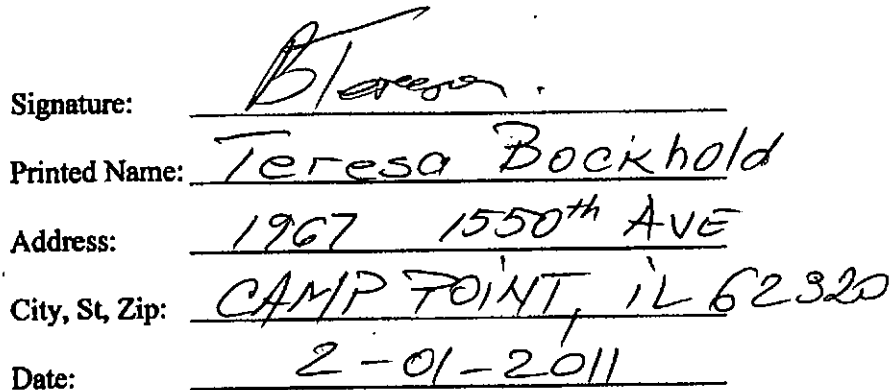 Signature: BTeresa.
Printed Name: Teresa Bockhold
Address: 1967 1550th AVE
City, St, Zip: CAMP POINT, iL 62320
Date: 2-01-2011